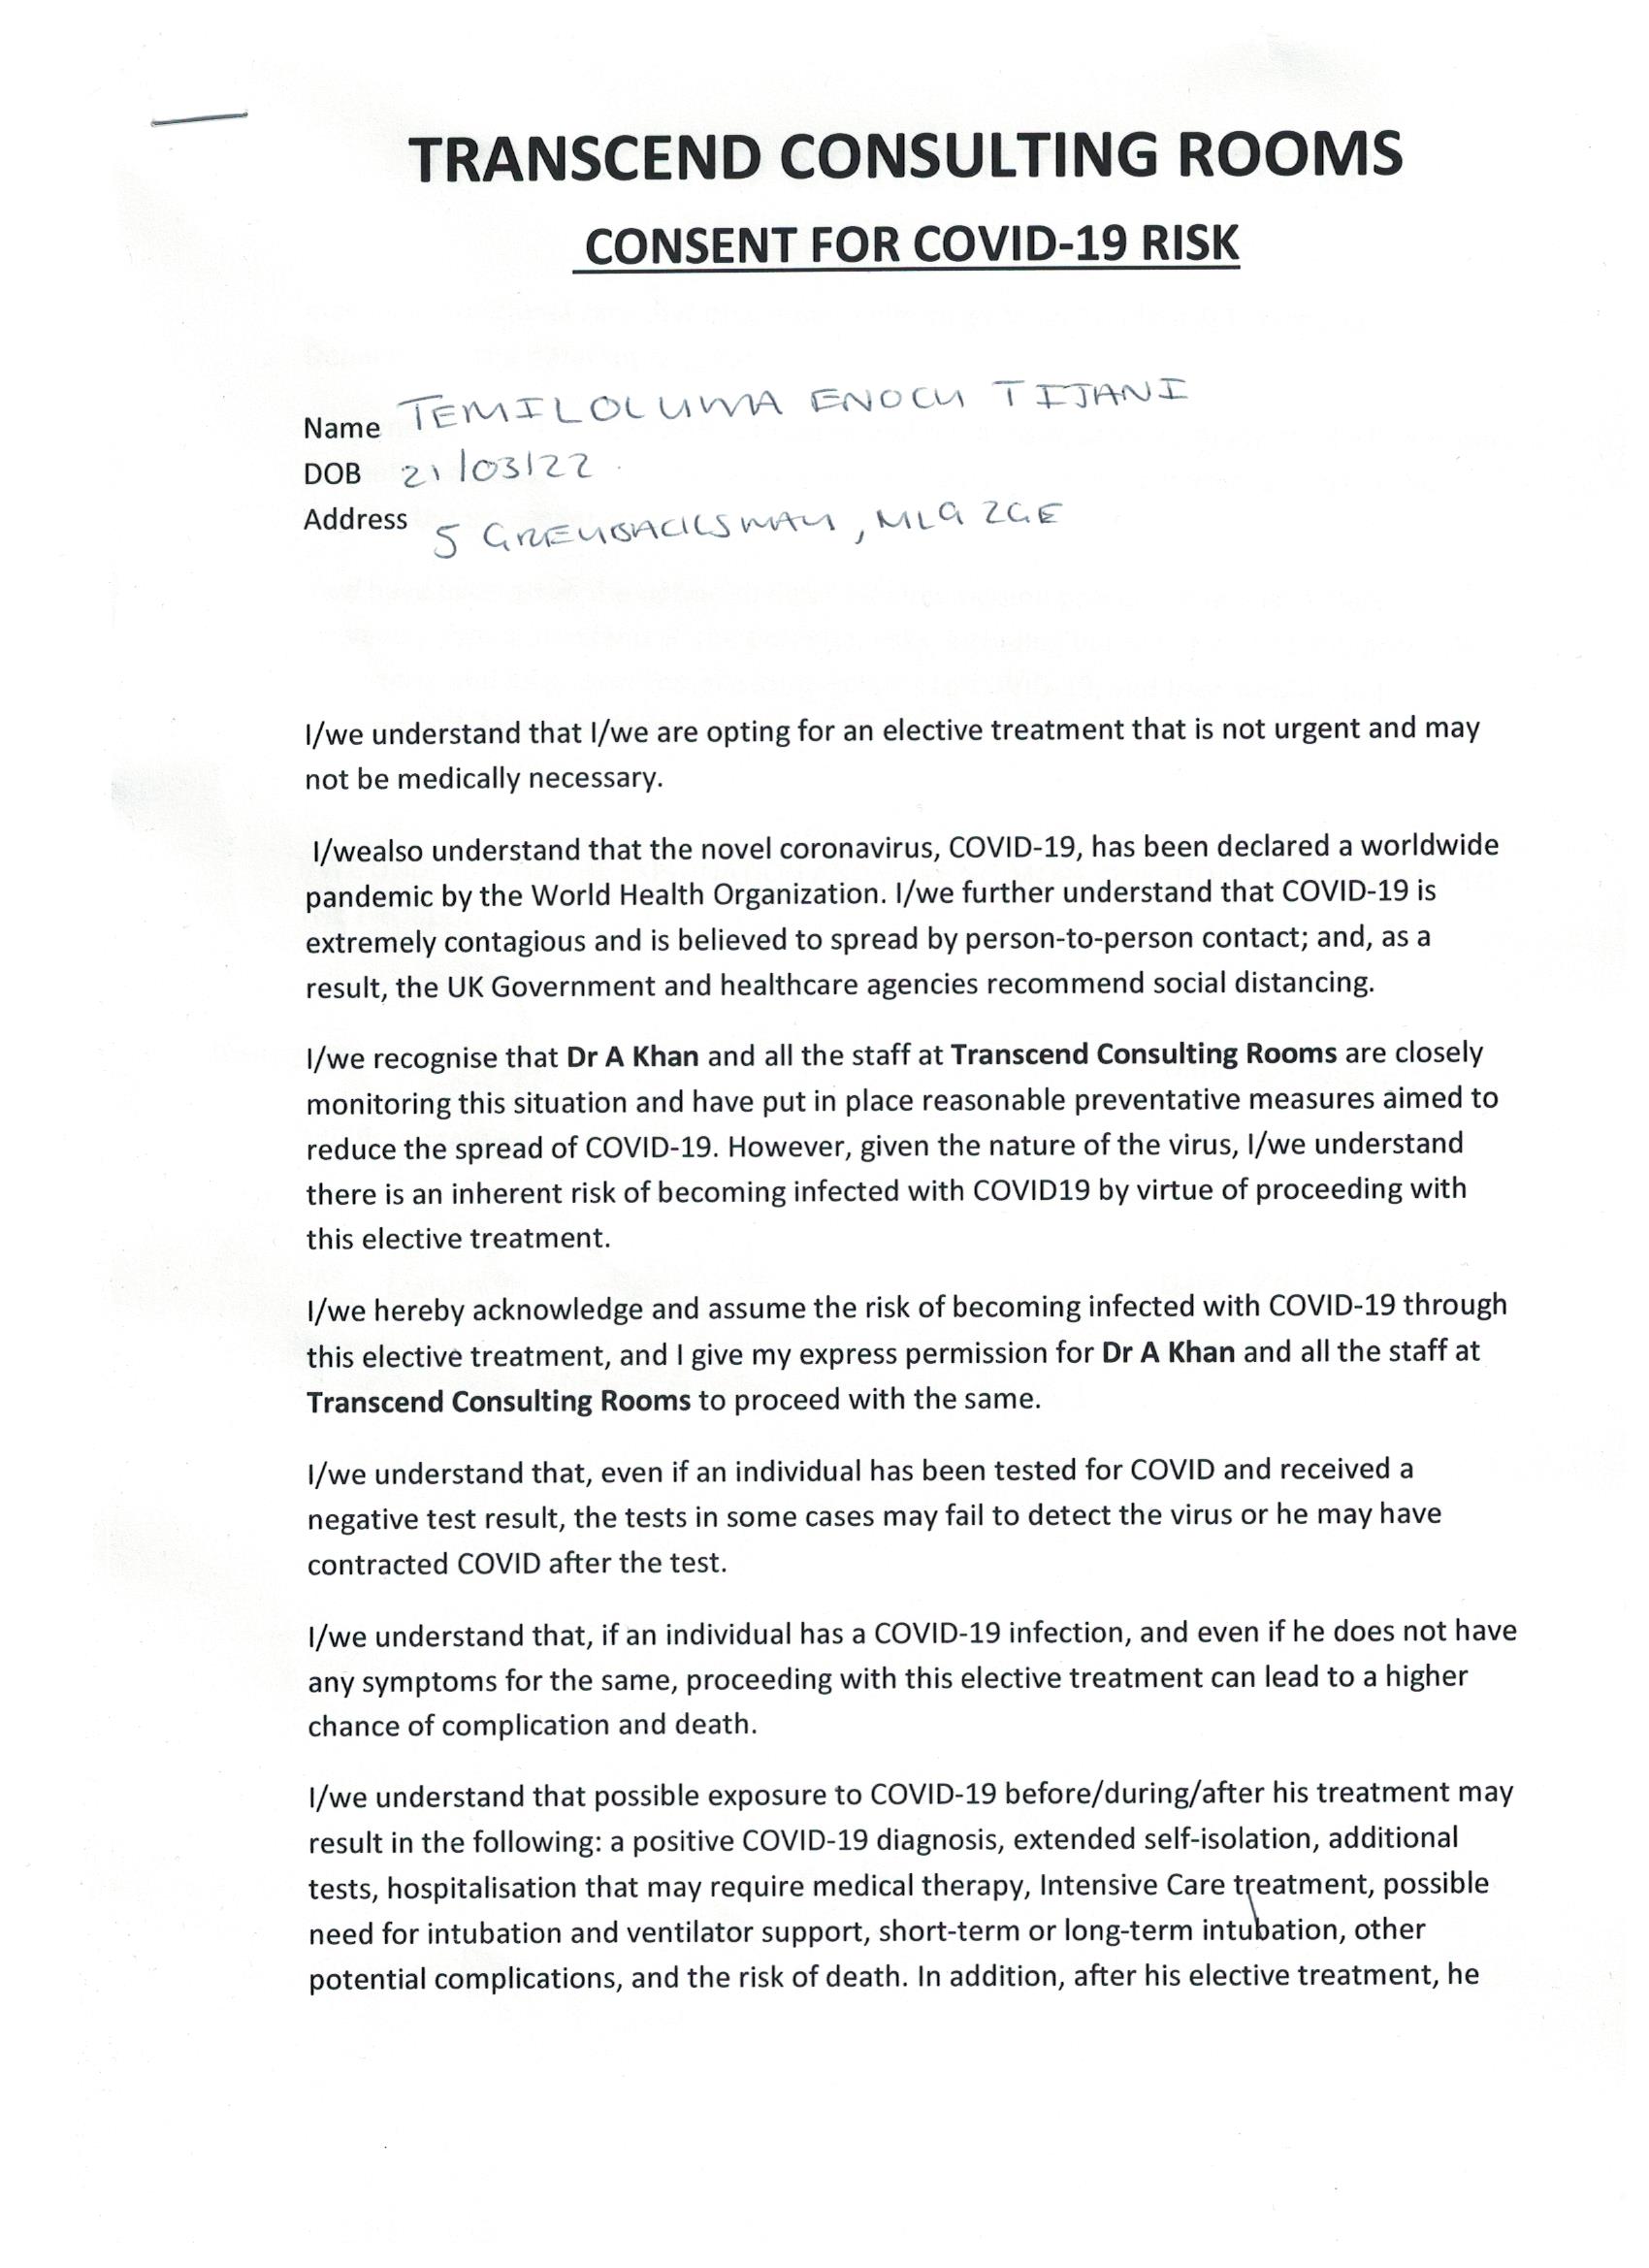 TRANSCEND CONSULTING ROOMS
CONSENT FOR COVID-19 RISK
Name TEMILOLUWA ENOCH TIJANI
DOB 21/03/22
Address 5, ML9 2GE
I/we understand that I/we are opting for an elective treatment that is not urgent and may
not be medically necessary.
I/wealso understand that the novel coronavirus, COVID-19, has been declared a worldwide
pandemic by the World Health Organization. I/we further understand that COVID-19 is
extremely contagious and is believed to spread by person-to-person contact; and, as a
result, the UK Government and healthcare agencies recommend social distancing.
I/we recognise that Dr A Khan and all the staff at Transcend Consulting Rooms are closely
monitoring this situation and have put in place reasonable preventative measures aimed to
reduce the spread of COVID-19. However, given the nature of the virus, I/we understand
there is an inherent risk of becoming infected with COVID19 by virtue of proceeding with
this elective treatment.
I/we hereby acknowledge and assume the risk of becoming infected with COVID-19 through
this elective treatment, and I give my express permission for Dr A Khan and all the staff at
Transcend Consulting Rooms to proceed with the same.
I/we understand that, even if an individual has been tested for COVID and received a
negative test result, the tests in some cases may fail to detect the virus or he may have
contracted COVID after the test.
I/we understand that, if an individual has a COVID-19 infection, and even if he does not have
any symptoms for the same, proceeding with this elective treatment can lead to a higher
chance of complication and death.
I/we understand that possible exposure to COVID-19 before/during/after his treatment may
result in the following: a positive COVID-19 diagnosis, extended self-isolation, additional
tests, hospitalisation that may require medical therapy, Intensive Care treatment, possible
need for intubation and ventilator support, short-term or long-term intubation, other
potential complications, and the risk of death. In addition, after his elective treatment, he